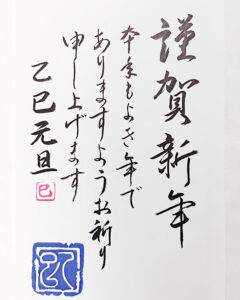 謹賀新年
本年もよき年で
ありますようお祈り
申し上げます
乙巳元旦
巳